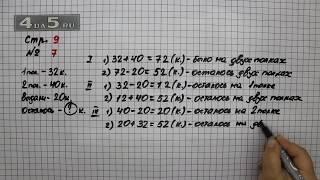 4DA5.RU
Стр. 9
№ 7
1 пол. - 32 к.
2 пол. - 40 к.
Выдали - 20 к.
Осталось - ? к.
I 1) 32+40=72 (к.) - было на двух полках
2) 72-20=52 (к.) - осталось на двух полках
II 1) 32-20=12 (к.) - осталось на 1 полке
2) 12+40=52 (к.) - осталось на двух полках
III 1) 40-20=20 (к.) - осталось на 2 полке
2) 20+32=52 (к.) - осталось на дв